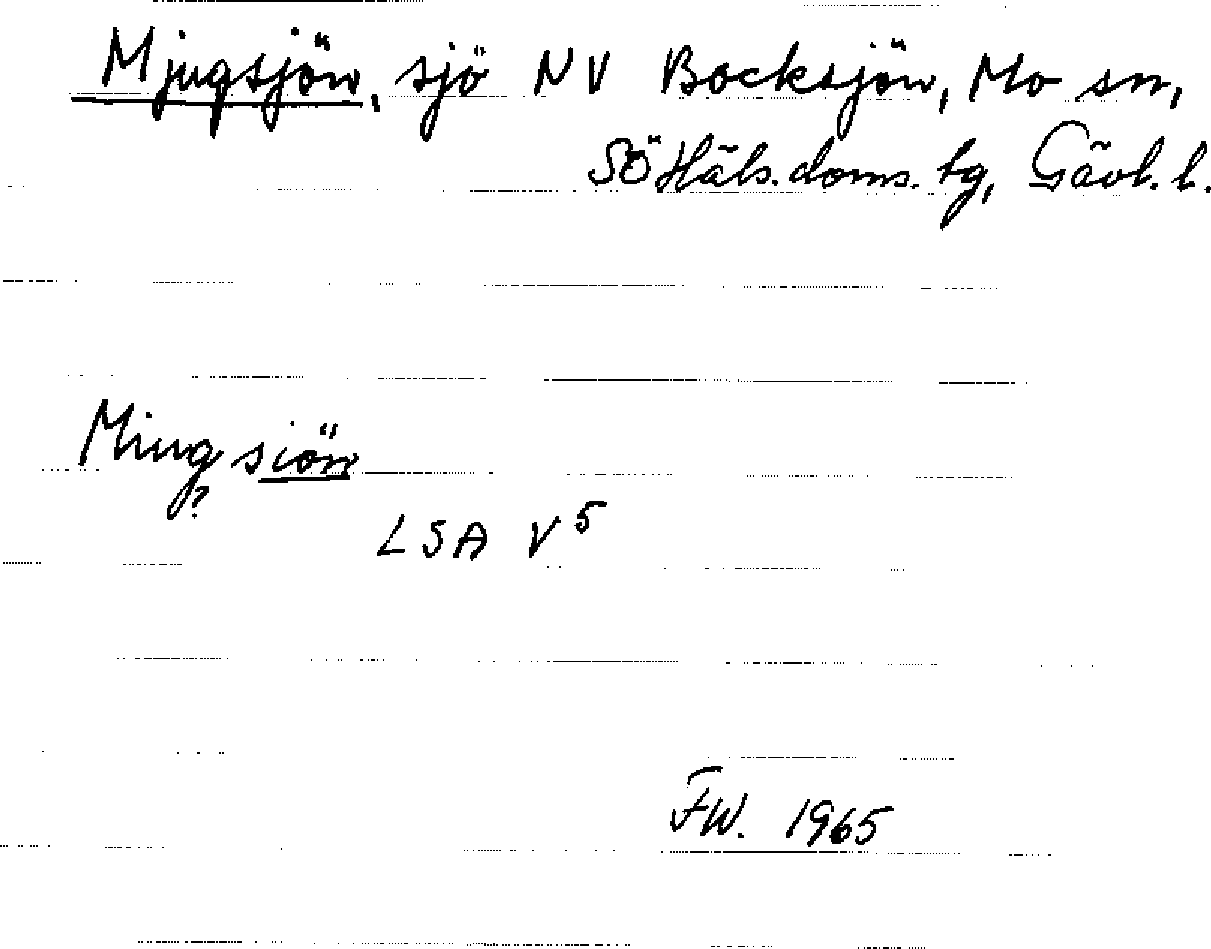 Mjugsjön, sjö NV Bocksjön, Mo sn,
SÖ Häls. doms. tg, Gävl. l.
Miugsiön
?
LSA V5
FW. 1965